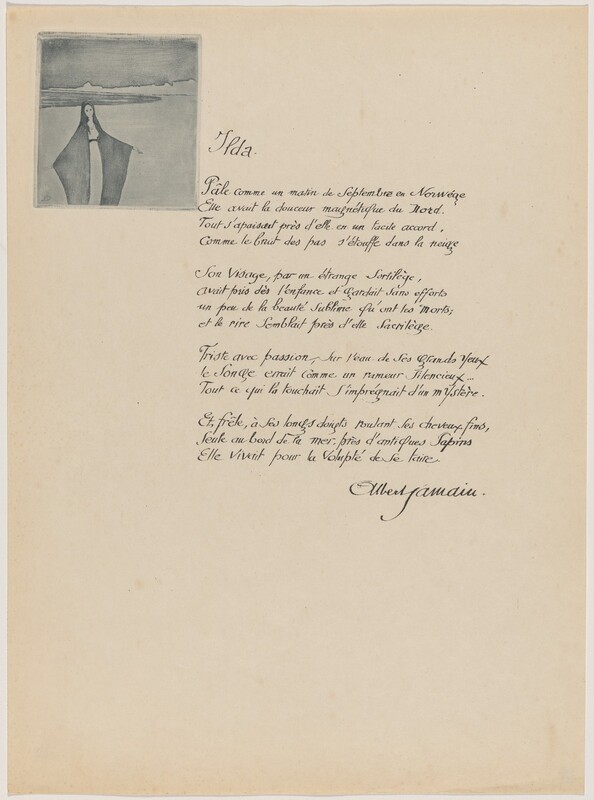 Ilda.
Pâle comme un matin de Septembre en Norwège
Elle avait la douceur magnétique du Nord.
Tout s'apaisait près d'elle en un tacite accord,
Comme le bruit des pas s'étouffe dans la neige
Son Visage, par un étrange Sortilège,
avait pris dès l'enfance et gardait sans efforts
un peu de la beauté Sublime qu'ont les Morts;
et le rire Semblait près d'elle Sacrilège.
Triste avec passion, Sur l'eau de Ses grands Yeux
le Songe errait comme un rameur Silencieux...
Tout ce qui la touchait S'imprégnait d'un mYstère.
Et, frêle, à Ses longs doigts roulant Ses cheveux fins,
Seule au bord de la mer, près d'antiques Sapins
Elle Vivait pour la Volupté de Se taire.
Albert Samain.